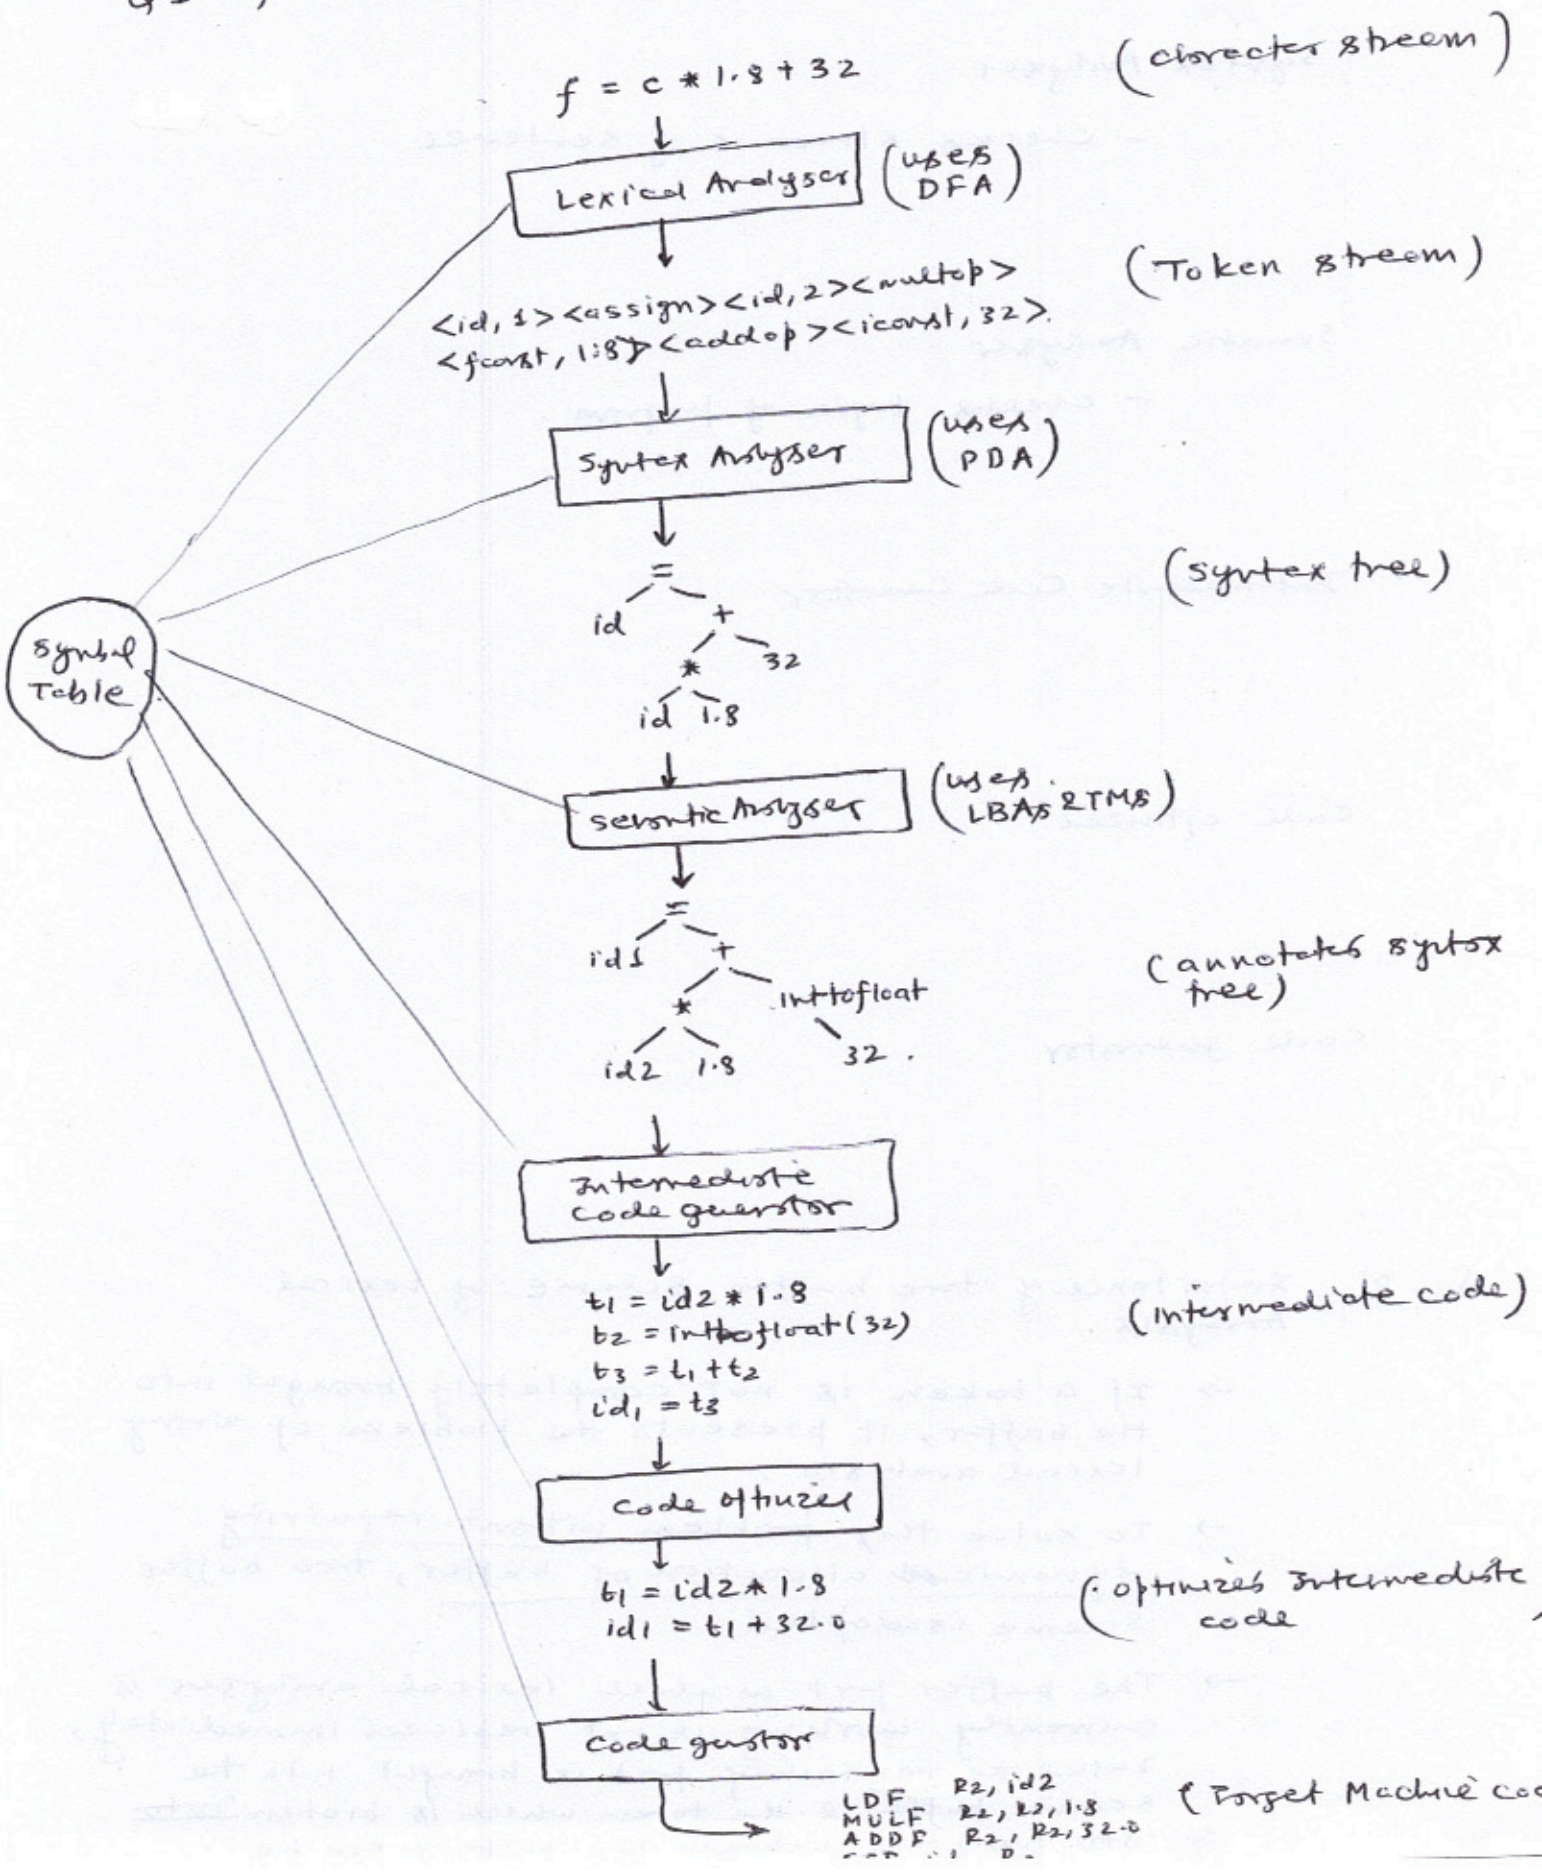 f = c * 1.8 + 32
(chorecter stream)
Lexical Analyser
(uses
DFA)
<id, 1><assign><id, 2><multop>
<fconst, 1.8><addop><iconst, 32>.
(Token stream)
Syntex Analyser
(uses
PDA)
=
id +
* 32
id 1.8
(syntex tree)
Symbol
Table
semantic Analyser
(uses
LBAs & TMs)
=
id1 +
* inttofloat
id2 1.8 32 .
(annotates syntax
tree)
Intermediate
code generator
t1 = id2 * 1.8
t2 = inttofloat(32)
t3 = t1 + t2
id1 = t3
(intermediate code)
Code optimizer
t1 = id2 * 1.8
id1 = t1 + 32.0
(optimizes Intermediate
code
Code
LDF R2, id2
MULF R2, R2, 1.8
ADDF R2, R2, 32.0
Machine